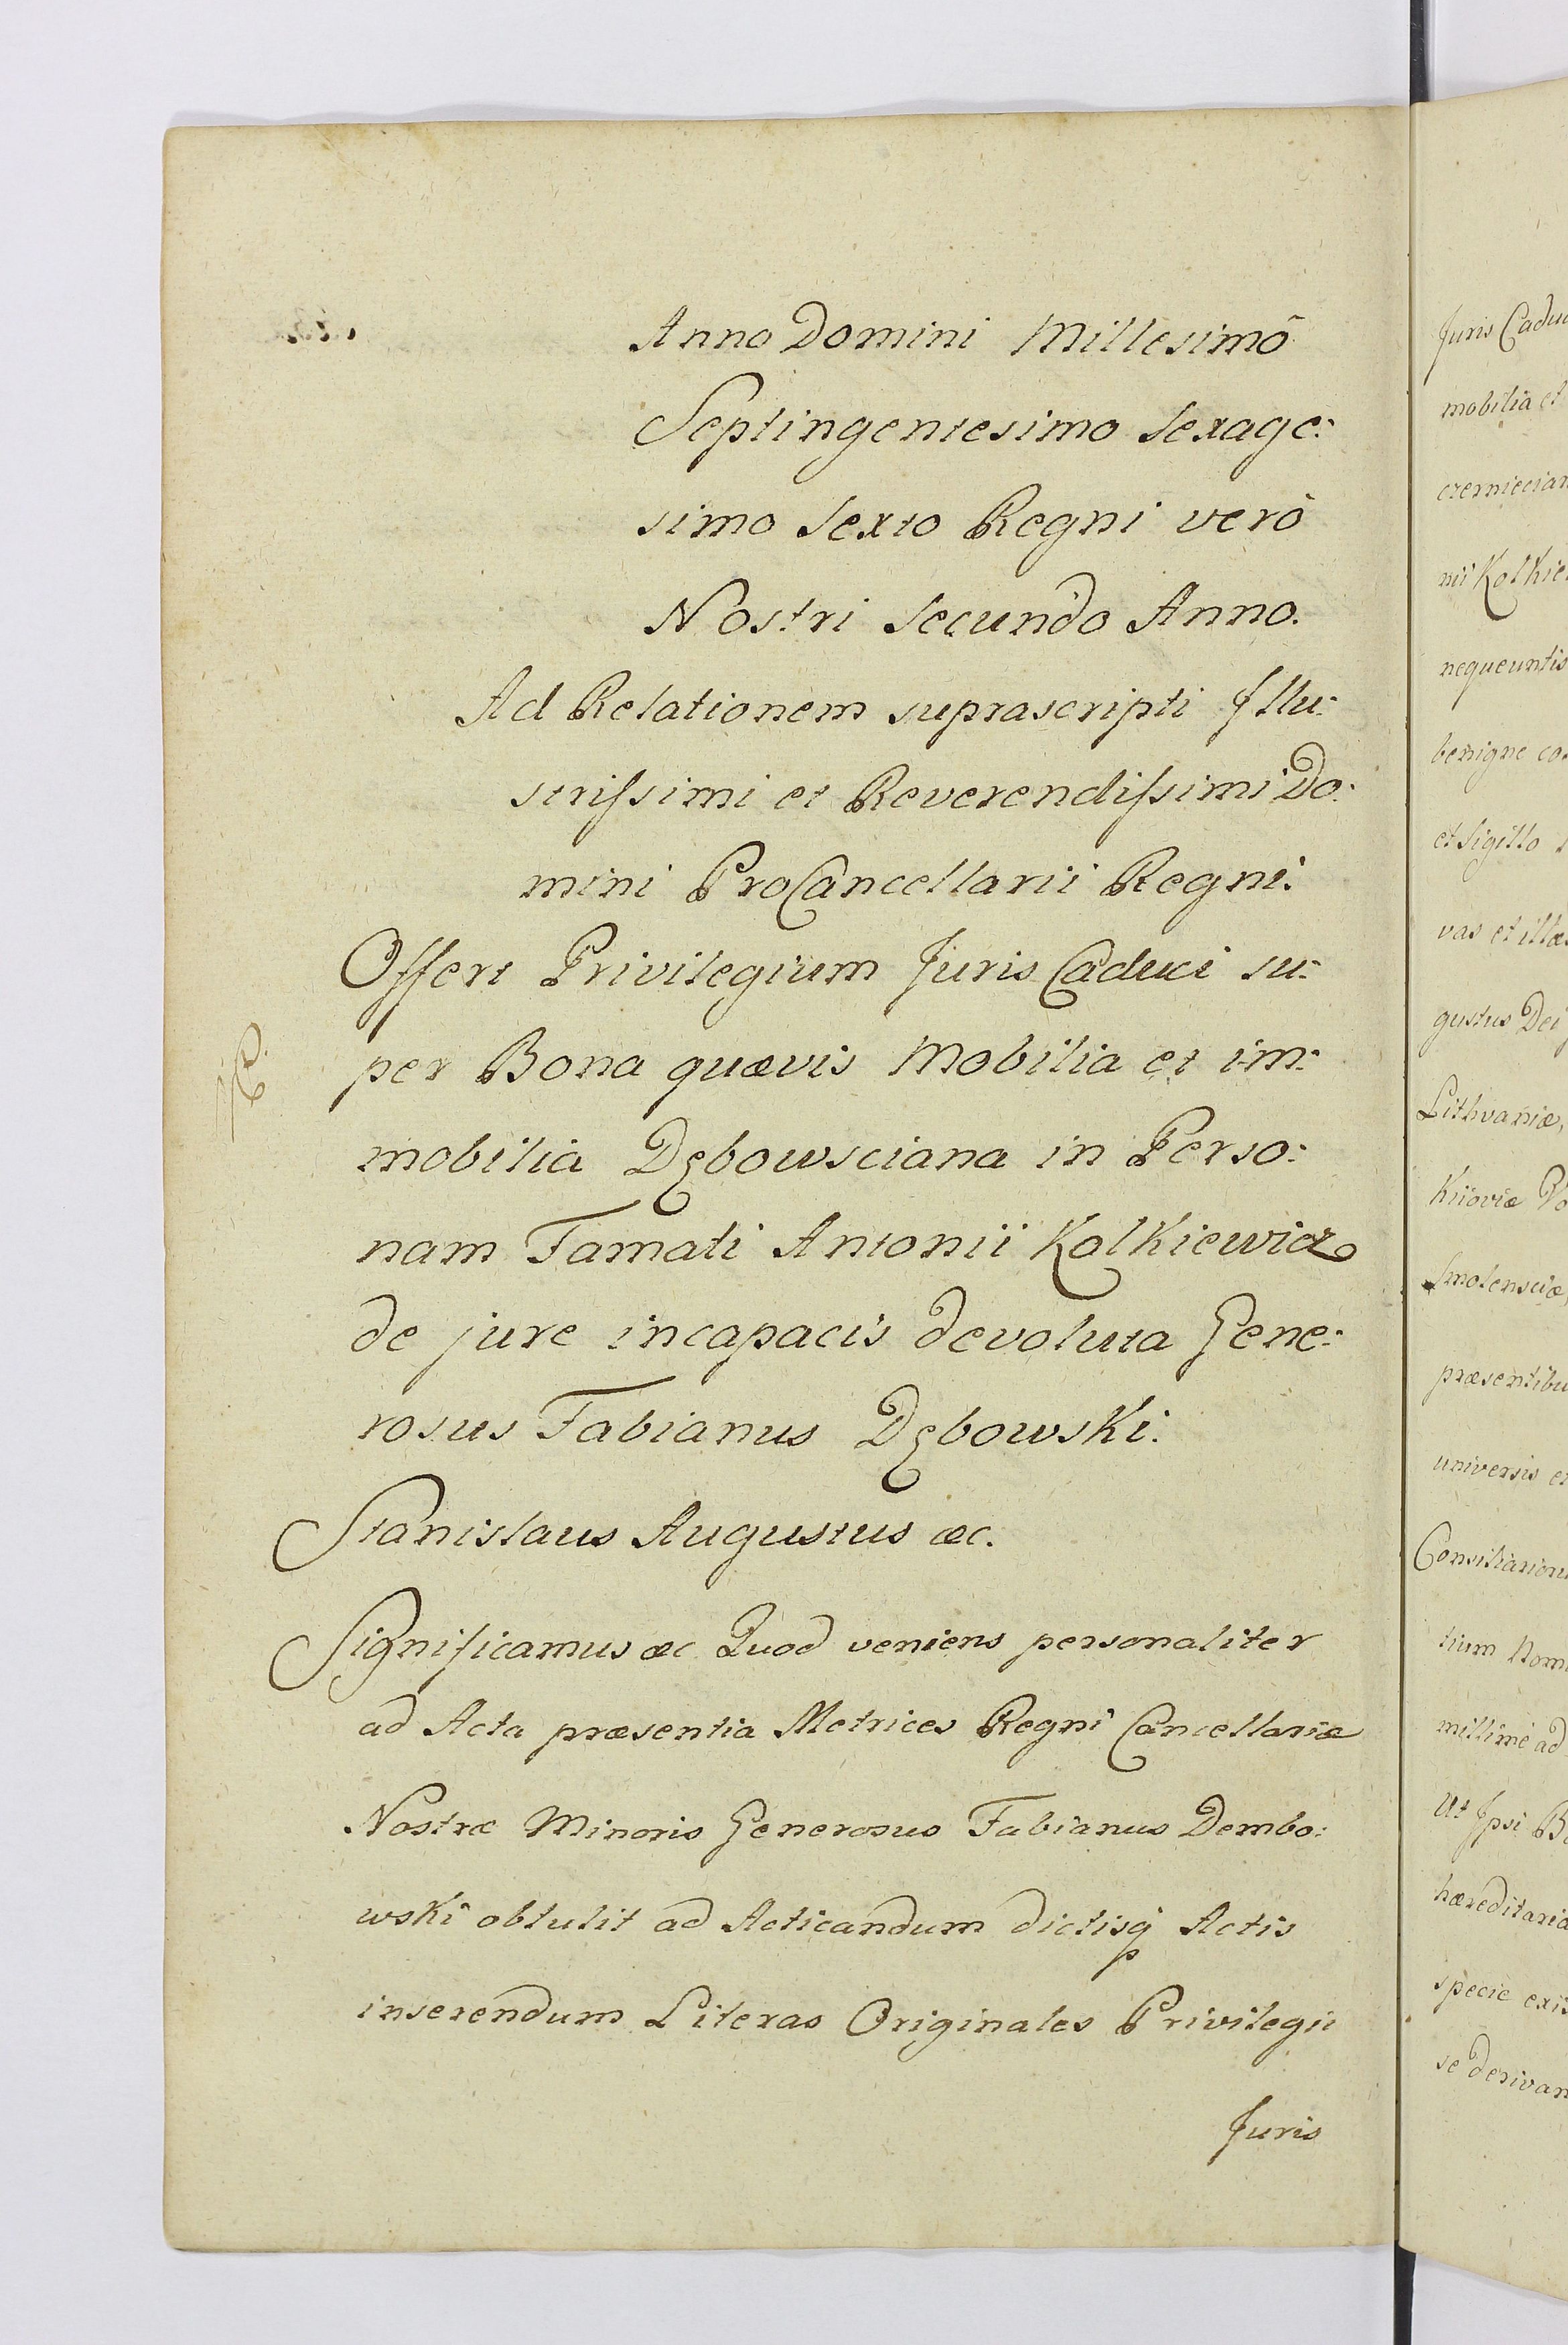 Anno Domini Millesimô
Septingentesimo sexage:
simo sexto Regni verô
Nostri secundo Anno.
Ad Relationem suprascripti Illu:
strissimi et Reverendissimi Do:
mini ProCancellarii Regni.
Offert Privilegium Juris Caduci su:
per Bona quævis Mobilia et im:
mobilia Dębowsciana in Perso:
nam Famati Antonii Kolkiewicz
de jure incapacis devoluta Gene:
rosus Fabianus Dębowski.
Stanislaus Augustus æc.
Significamus æc Quod veniens personaliter
ad Acta præsentia Metrices Regni Cancellariæ
Nostræ Minoris Generosus Fabianus Dembo:
wski obtulit ad Acticandum dictisq Actis
inserendum Literas Originales Privilegii
Juris
Juris Cadu
mobilia et
czernieccian
nii Kolkie
nequeuntis
benigne co
et Sigillo
vas et illæ
gustus Dei
Lithvaniæ,
Kiioviæ Vo
Smolensciæ,
præsentibu
universis et
Consiliarior
tium Nom
millimè ad
Ut Ipsi Bo
hæreditaria
specie exis
se derivan